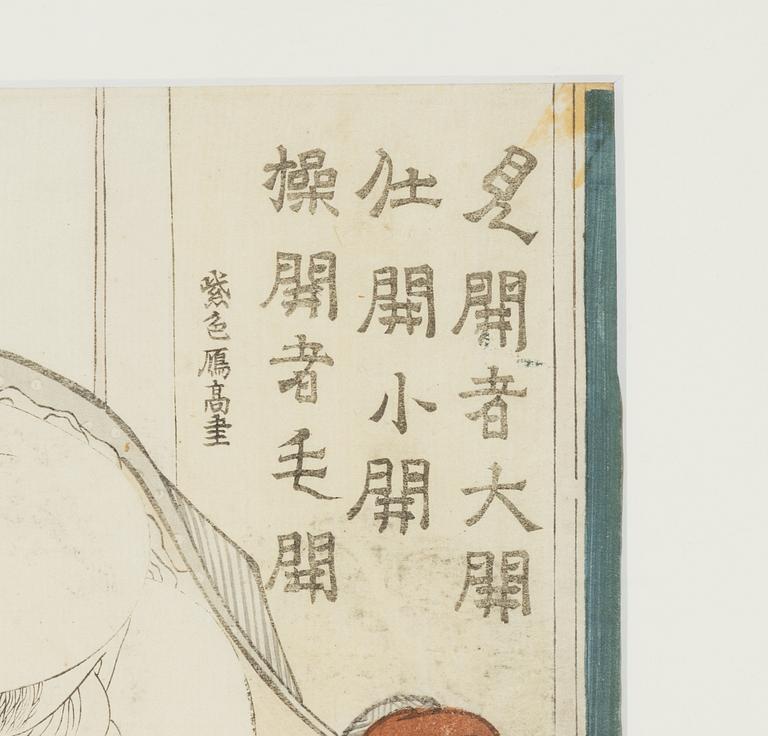 見開者大開
仕開小開
操開者毛開
紫色鴈高画